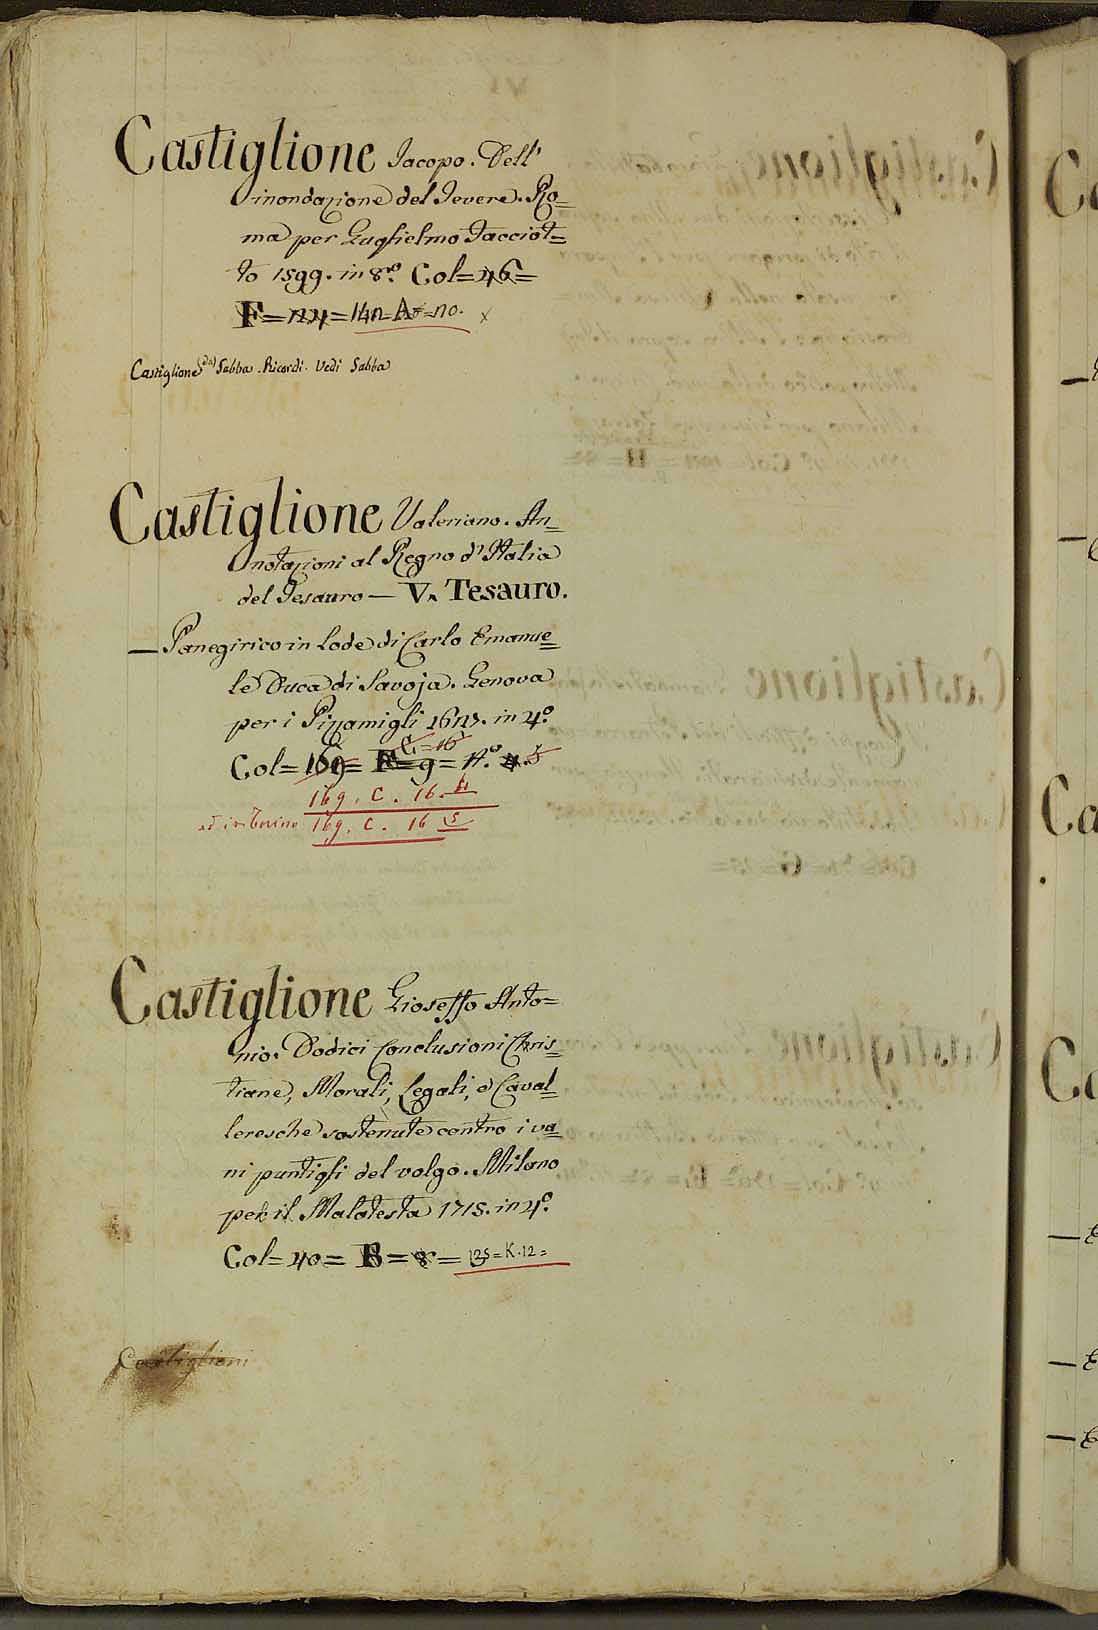 Castiglione Iacopo. Dell'
inondazione del Tevere. Ro=
ma per Guglielmo Facciot=
to 1599. in 8.º Col=46=
F=124=142=A=no. x
Castiglione (da) Sabba. Ricordi. Vedi Sabba
Castiglione Valeriano. An=
notazioni al Regno d'Italia
del Tesauro — V. Tesauro.
— Panegirico in lode di Carlo Emanue=
le Duca di Savoja. Genova
per i Pizzamigli in 4º.
C=16
Col=169= F=9= nº. 4. 5
169. C. 16.
ed. in Torino 169. C. 16 5
Castiglione Gioseffo Anto=
nio. Dodici Conclusioni Chris=
tiane, Morali, Legali, e Caval=
leresche sostenute contro i va=
ni puntigli del volgo. Milano
per il Malatesta 1715. in 4º.
Col=40= B=8= 125=K.12=
Castiglioni